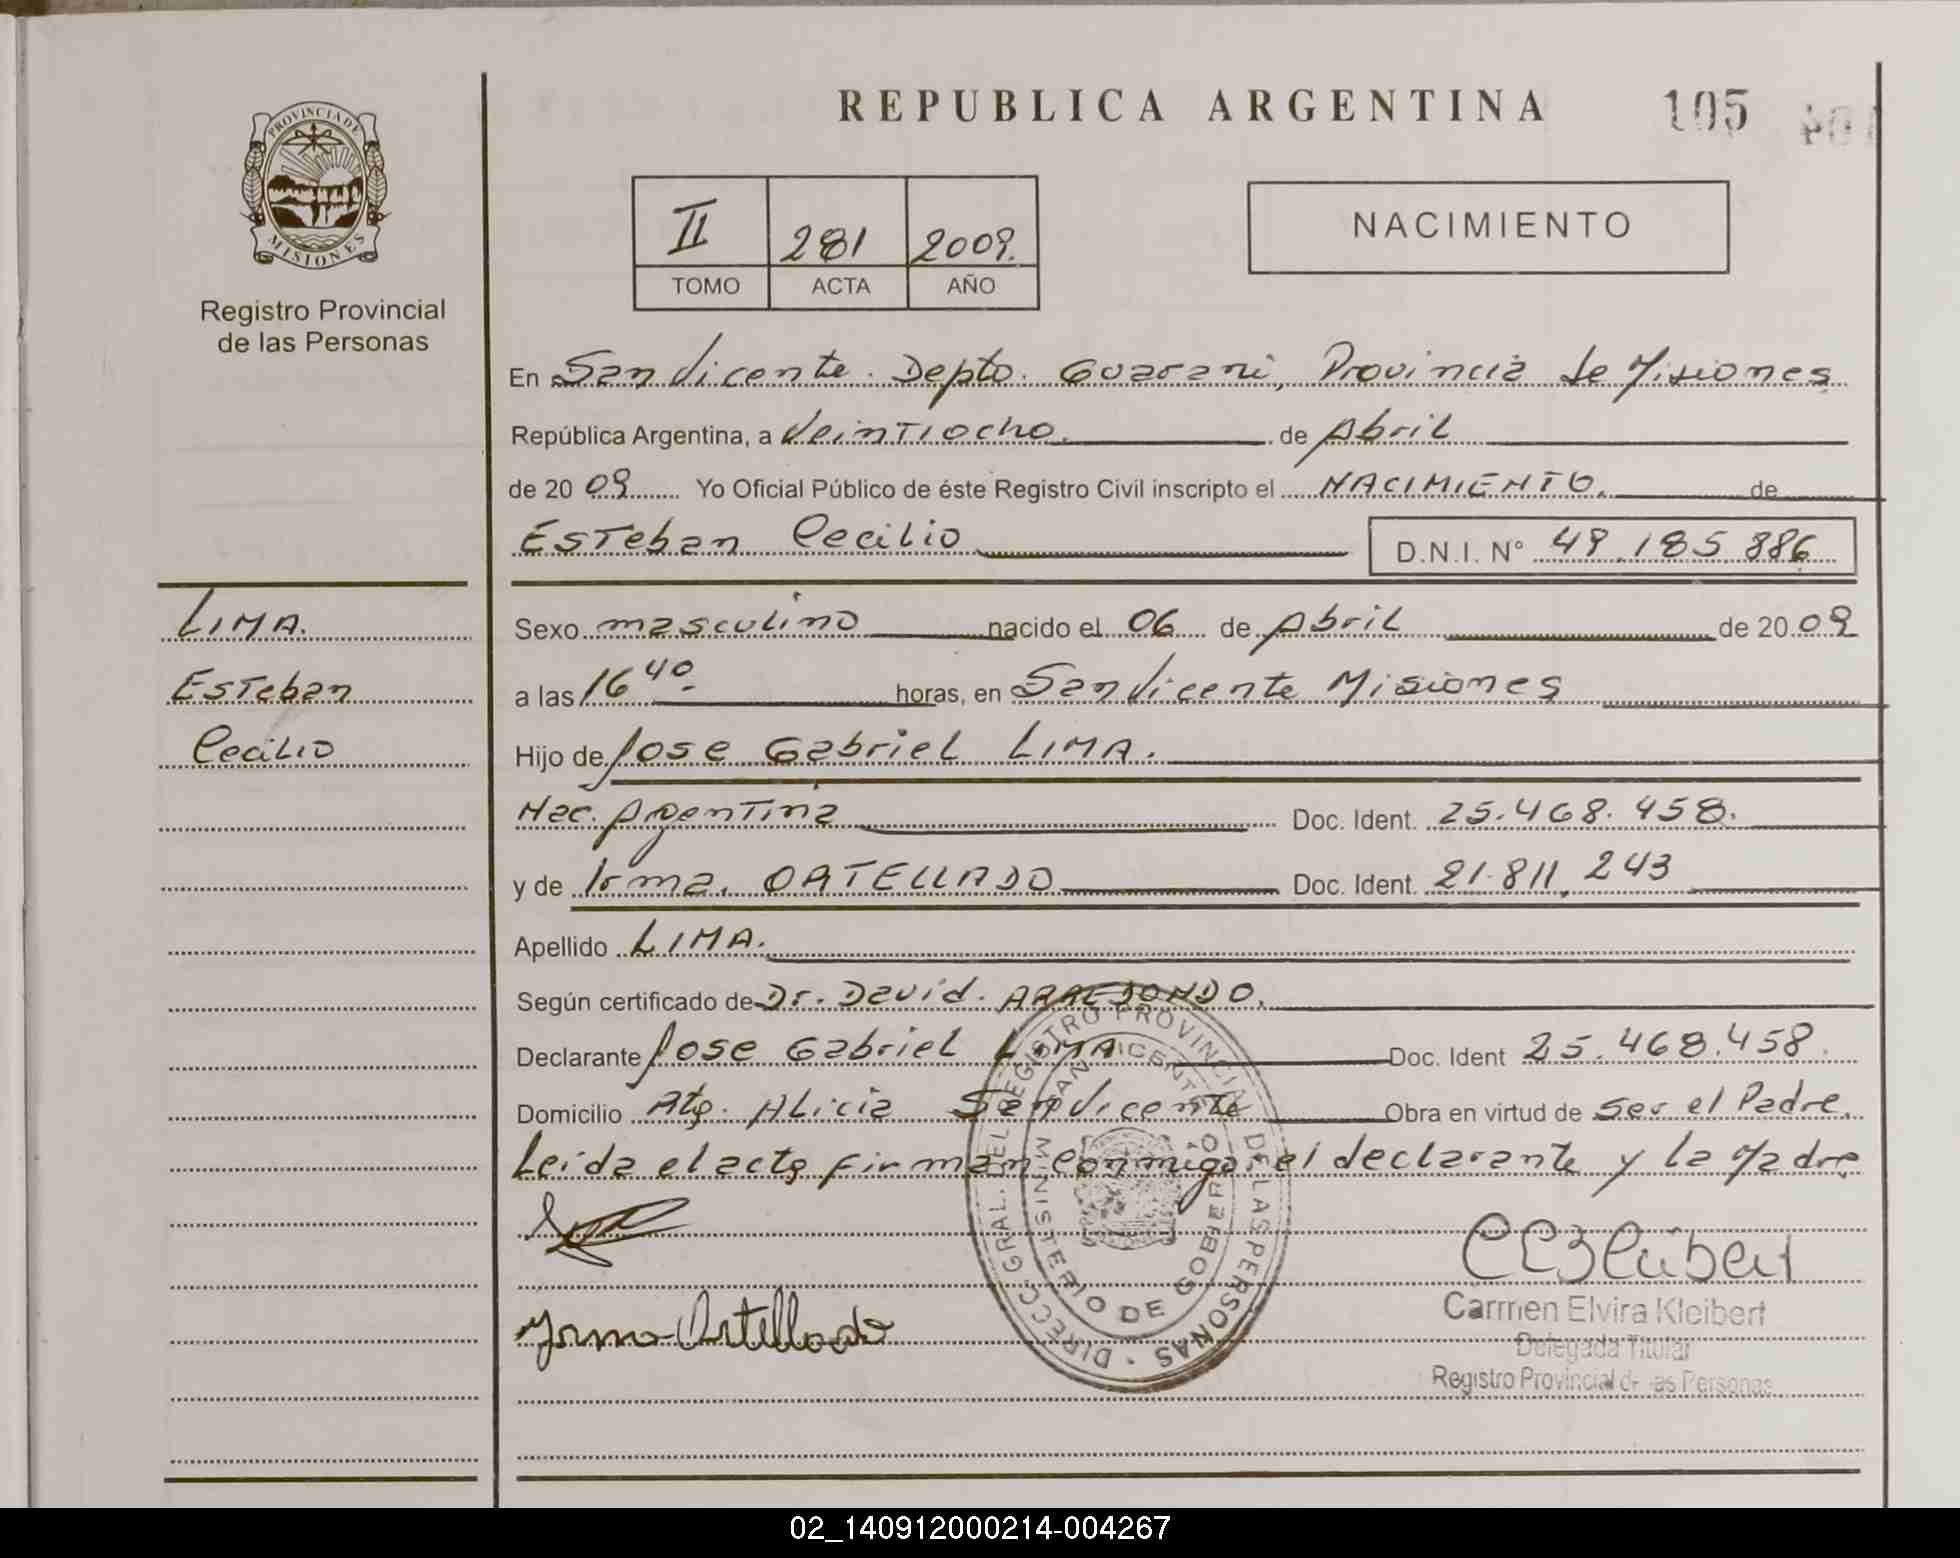 REPUBLICA ARGENTINA 105
PROVINCIA DE MISIONES
Registro Provincial
de las Personas
II 281 2009.
TOMO ACTA AÑO
NACIMIENTO
En San Vicente. Depto. Guarani, Provincia de Misiones
República Argentina, a Veintiocho. de Abril
de 20 09 Yo Oficial Público de éste Registro Civil inscripto el NACIMIENTO. de
Esteban Cecilio D.N.I. N° 49.185.886
LIMA.
Esteban
Cecilio
Sexo masculino nacido el 06 de Abril de 20 09
a las 16 40 horas, en San Vicente Misiones
Hijo de Jose Gabriel LIMA.
Nac. Argentina Doc. Ident. 25.468.458.
y de Irma. ORTELLADO Doc. Ident. 21.811.243
Apellido LIMA.
Según certificado de Dr. David. ARREDONDO.
Declarante Jose Gabriel LIMA Doc. Ident 25.468.458.
Domicilio Alicia San Vicente Obra en virtud de Ser el Padre.
Leida el acta firman conmigo el declarante y la Madre
DIRECC. GRAL. DEL REGISTRO PROVINCIAL DE LAS PERSONAS
MINISTERIO DE GOBIERNO
SAN VICENTE
Irma Ortellado
Carmen Elvira Kleibert
Delegada Titular
Registro Provincial de las Personas
02_140912000214-004267